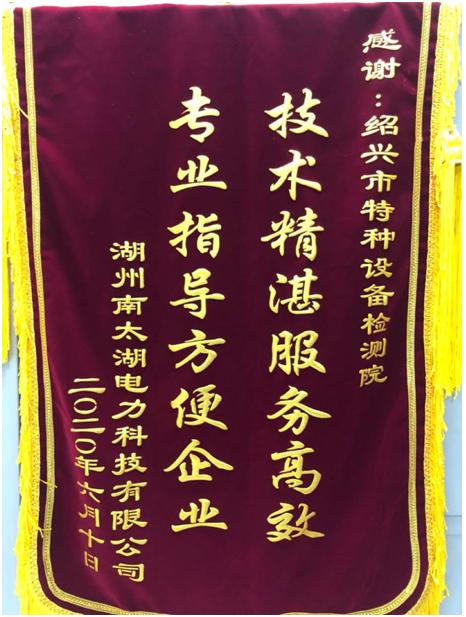 感谢：绍兴市特种设备检测院
技术精湛服务高效
专业指导方便企业
湖州南太湖电力科技有限公司
二〇二〇年六月十日